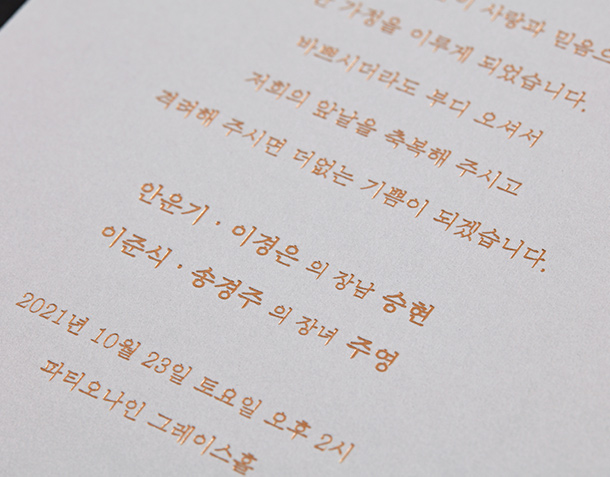 사랑과 믿음으
가정을 이루게 되었습니다.
바쁘시더라도 부디 오셔서
저희의 앞날을 축복해 주시고
격려해 주시면 더없는 기쁨이 되겠습니다.
안윤기 · 이경은 의 장남 승현
이준식 · 송경주 의 장녀 주영
2021년 10월 23일 토요일 오후 2시
파티오나인 그레이스홀